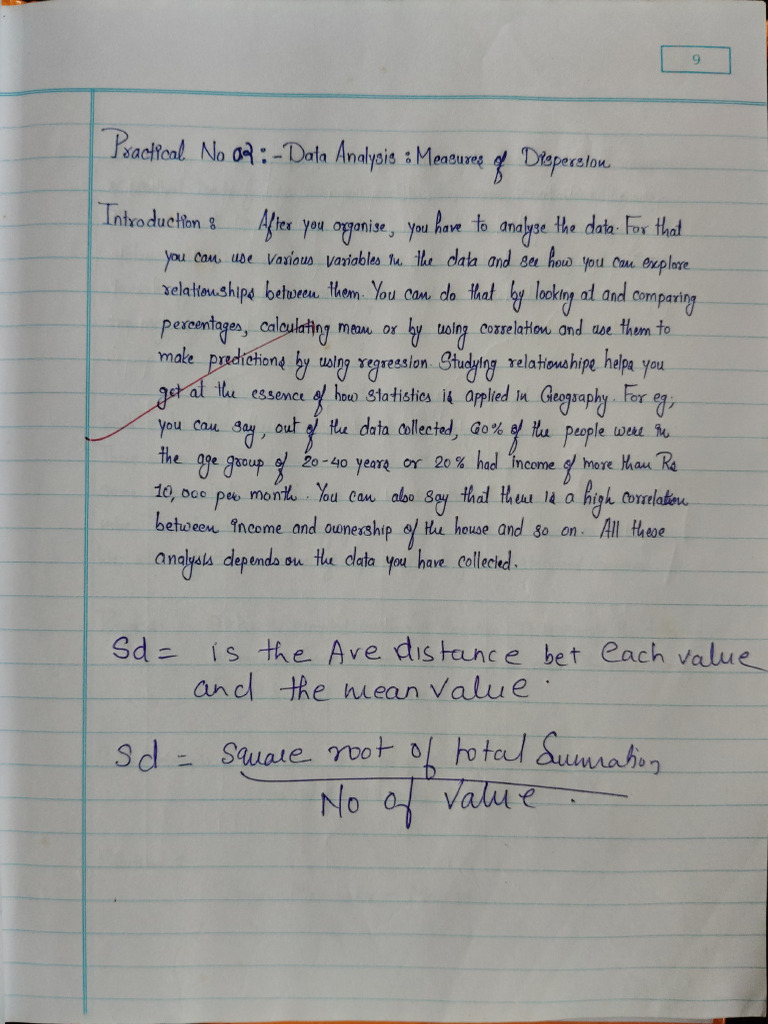 9
Practical No 02 :- Data Analysis : Measures of Dispersion
Introduction : After you organise, you have to analyse the data. For that
you can use various variables in the data and see how you can explore
relationships between them. You can do that by looking at and comparing
percentages, calculating mean or by using correlation and use them to
make predictions by using regression. Studying relationships helps you
get at the essence of how statistics is applied in Geography. For eg;
you can say, out of the data collected, 60% of the people were in
the age group of 20-40 years or 20% had income of more than Rs
10,000 per month. You can also say that there is a high correlation
between income and ownership of the house and so on. All these
analysis depends on the data you have collected.
Sd = is the Ave distance bet each value
and the mean value.
Sd = Square root of total Summation
No of value.